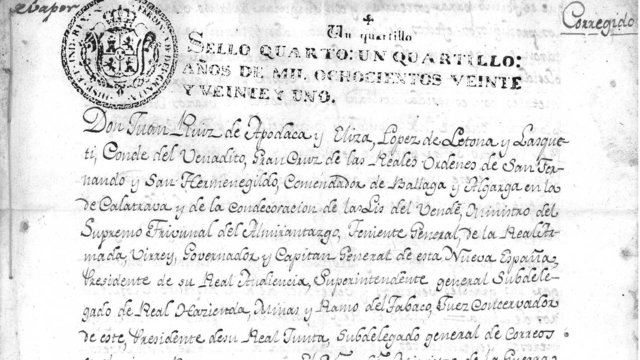 Corregido
Un quartillo
SELLO QUARTO: UN QUARTILLO:
AÑOS DE MIL OCHOCIENTOS VEINTE
Y VEINTE Y UNO.
Don Juan Ruiz de Apodaca y Eliza, Lopez de Letona y Lasque-
ti, Conde del Venadito, Gran Cruz de las Reales Ordenes de San Fer-
nando y San Hermenegildo, Comendador de Ballaga y Algarga en la
de Calatrava y de la condecoracion de la Lis del Vendé, Ministro del
Supremo Tribunal del Almirantazgo, Teniente General de la Real Ar-
mada, Virrey, Governador y Capitan General de esta Nueva España,
Presidente de su Real Audiencia, Superintendente general Subdele-
gado de Real Hazienda, Minas y Ramo del Tabaco, Juez Conservador
de este, Presidente de su Real Junta, Subdelegado general de Correos